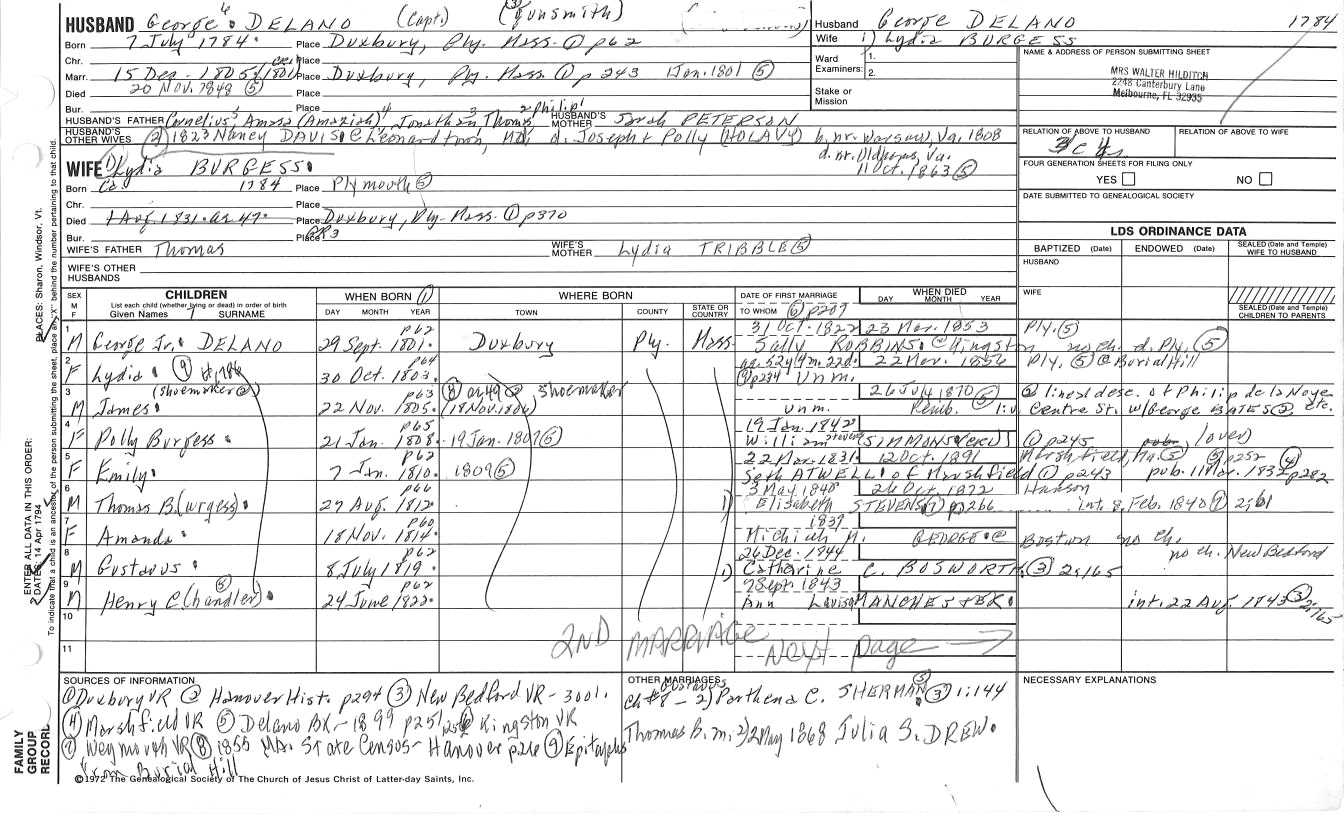 HUSBAND George 6 DELANO (Capt) (Gunsmith) (3)
Born 7 July 1784. Place Duxbury, Ply. Mass. ① p62
Chr. Place
Marr. 15 Dec. 1805 (1801) Place Duxbury, Ply. Mass ① p 243 1 Jan. 1801 ⑤
Died 20 Nov. 1848 ⑤ Place
Bur. Place
HUSBAND'S FATHER Cornelius 5, Amasa (Amaziah) 4, Jonathan 3 Thomas 2 Philip 1 HUSBAND'S MOTHER Sarah PETERSON
HUSBAND'S OTHER WIVES (2) 1823 Nancy DAVIS @ Leonardtown, Md. d. Joseph & Polly (HOLAVY) b. nr. Warsaw, Va. 1808
d. nr. Oldhams, Va.
11 Oct. 1863 ⑤
WIFE (1) Lydia BURGESS.
Born Ca 1784 Place Plymouth ⑤
Chr. Place
Died 1 Aug. 1831. ae 47. Place Duxbury, Ply. Mass. ① p370
Bur. Place GR3
WIFE'S FATHER Thomas WIFE'S MOTHER Lydia TRIBBLE ⑤
WIFE'S OTHER HUSBANDS
Husband George DELANO 1784
Wife 1) Lydia BURGESS
Ward Examiners: 1.
2.
Stake or Mission
NAME & ADDRESS OF PERSON SUBMITTING SHEET
MRS WALTER HILDITCH
2248 Canterbury Lane
Melbourne, FL 32935
RELATION OF ABOVE TO HUSBAND RELATION OF ABOVE TO WIFE
FOUR GENERATION SHEETS FOR FILING ONLY
YES NO
DATE SUBMITTED TO GENEALOGICAL SOCIETY
LDS ORDINANCE DATA
BAPTIZED (Date) ENDOWED (Date) SEALED (Date and Temple) WIFE TO HUSBAND
HUSBAND
WIFE
SEALED (Date and Temple) CHILDREN TO PARENTS
SEX M F CHILDREN List each child (whether living or dead) in order of birth Given Names SURNAME WHEN BORN ① DAY MONTH YEAR WHERE BORN TOWN COUNTY STATE OR COUNTRY DATE OF FIRST MARRIAGE TO WHOM WHEN DIED DAY MONTH YEAR
⑥ p207
1 M George Jr. DELANO 29 Sept. 1801. p62 Duxbury Ply. Mass. 31 Oct. 1822 23 Mar. 1853 Ply. ⑤
Sally ROBBINS @ Kingston no ch. d. Ply. ⑤
2 F Lydia. ⑨ 30 Oct. 1803. p64 ae. 52y 4m. 22d. 22 Mar. 1856 Ply. ⑤ @ Burial Hill
⑨ p234 Unm.
3 M James. (shoemaker ②) 22 Nov. 1805. p63 (18 Nov. 1806) ⑧ ae 49 ② shoemaker 26 July 1870 ⑤ ② lineal desc. of Philip de la Noye
Unm. Pemb. Centre St. w/George BATES ②, etc.
4 F Polly Burgess. 21 Jan. 1808. p65 19 Jan. 1807 ⑤ 19 Jan. 1842
William Stevens SIMMONS ① p245 (over)
5 F Emily. 7 Jan. 1810. p62 1809 ⑤ 22 Mar. 1831. 12 Oct. 1891 Marshfield, Ma. ⑤ p252 ④
Seth ATWELL of Marshfield ① p243 pub. 11 Mar. 1832 p282
6 M Thomas B. (urgess). 27 Aug. 1812. p66 3 May 1840 26 Oct. 1872 Hanson
1) Elizabeth STEVENS ① p266 int. 8 Feb. 1840 ⑦ 2:61
7 F Amanda. 18 Nov. 1814. p60 1837
Michiah M. GEORGE. @ Boston no ch.
8 M Gustavus. 8 July 1819. p62 26 Dec. 1844 no ch. New Bedford
1) Catharine C. BOSWORTH. ③ 2:165
9 M Henry C. (handler). ⑤ 24 June 1822. p62 7 Sept. 1843
Ann Louisa MANCHESTER. int. 22 Aug. 1843 ③ 2:165
10
11
2ND MARRIAGE Next page
SOURCES OF INFORMATION
① Duxbury VR ② Hanover Hist. p294 ③ New Bedford VR - 3001.
④ Marshfield VR ⑤ Delano BK - 1899 p251, 252 ⑥ Kingston VR
⑦ Weymouth VR ⑧ 1855 Ma. State Census - Hanover p226 ⑨ Epitaphs
from Burial Hill
OTHER MARRIAGES
Ch #8 - Gustavus 2) Parthena C. SHERMAN ③ 1:144
Thomas B. m. 2) 2 May 1868 Julia S. DREW.
NECESSARY EXPLANATIONS
©1972 The Genealogical Society of The Church of Jesus Christ of Latter-day Saints, Inc.
FAMILY GROUP RECORD
ENTER ALL DATA IN THIS ORDER:
DATES: 14 Apr 1794
PLACES: Sharon, Windsor, Vt.
To indicate that a child is an ancestor of the person submitting the sheet, place an "X" behind the number pertaining to that child.